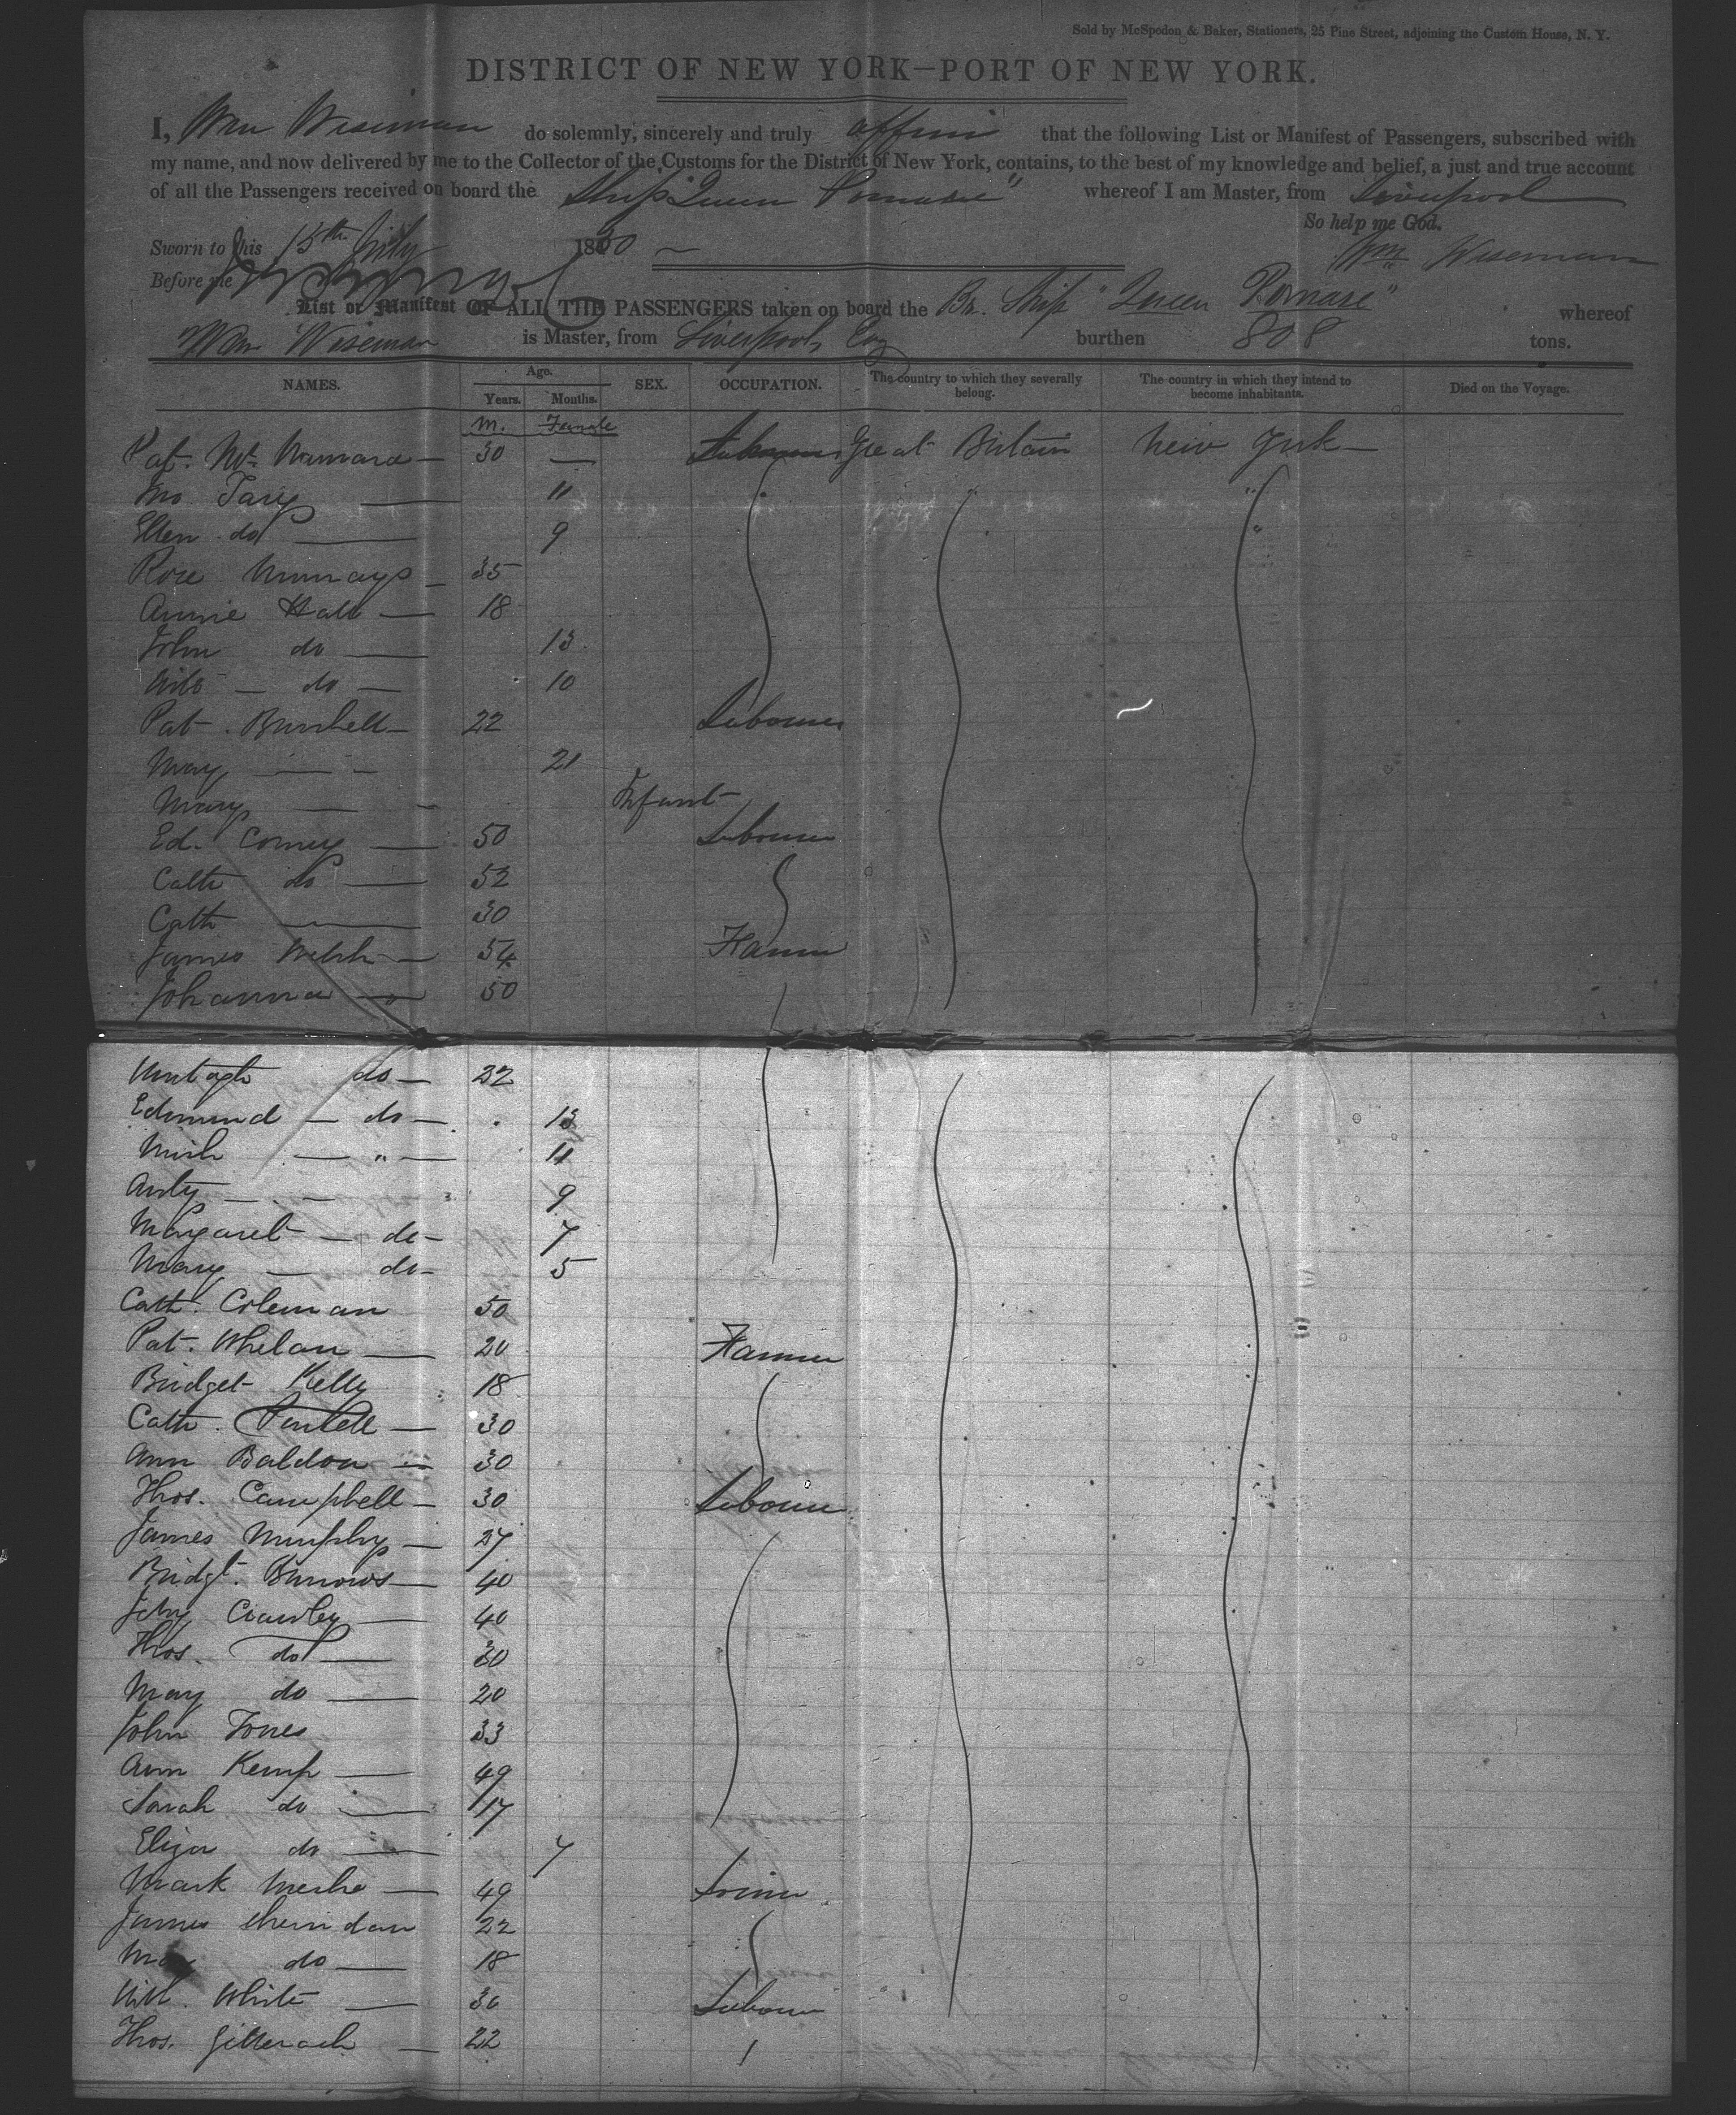 Sold by McSpedon & Baker, Stationers, 25 Pine Street, adjoining the Custom House, N. Y.
DISTRICT OF NEW YORK—PORT OF NEW YORK.
I, Wm Wiseman do solemnly, sincerely and truly affirm that the following List or Manifest of Passengers, subscribed with
my name, and now delivered by me to the Collector of the Customs for the District of New York, contains, to the best of my knowledge and belief, a just and true account
of all the Passengers received on board the Ship "Queen Pomare" whereof I am Master, from Liverpool
So help me God.
Sworn to this 15th July 1850 Wm Wiseman
Before me
List or Manifest OF ALL THE PASSENGERS taken on board the Br. Ship "Queen Pomare" whereof
Wm Wiseman is Master, from Liverpool, Eng burthen 808 tons.
NAMES. Age. Years. Months. SEX. OCCUPATION. The country to which they severally belong. The country in which they intend to become inhabitants. Died on the Voyage.
M. Female
Pat. 30 — Great Britain New York —
11 "
Ellen do — 9 "
Rose — 35
Annie — 18
John do — 13
— do — 10
Pat. — 22 Labourer
21
Mary — Infant
Ed. — 50 Labourer
Cath do — 52
Cath — 30
James Welsh — 54 Farmer
Johanna — 50
do — 22
Edmund — do — 13
Mich — " — 11
9
Margaret — do — 7
Mary — do — 5
Cath. Coleman 50
Pat. Whelan — 20 Farmer
Bridget Kelly 18
Cath. — 30
Ann — 30
Thos. Campbell — 30 Labourer
James Murphy — 27
Bridgt. Burrows — 40
Crawley — 40
Thos. do — 30
Mary do — 20
John Jones 33
Ann Kemp — 49
Sarah do — 17
Eliza do — 7
Mark — 49
James Sheridan 22
do — 18
White — 30 Labourer
Thos. — 22